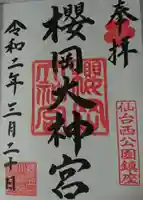 奉拝
櫻岡大神宮
仙台西公園鎮座
令和二年三月二十日